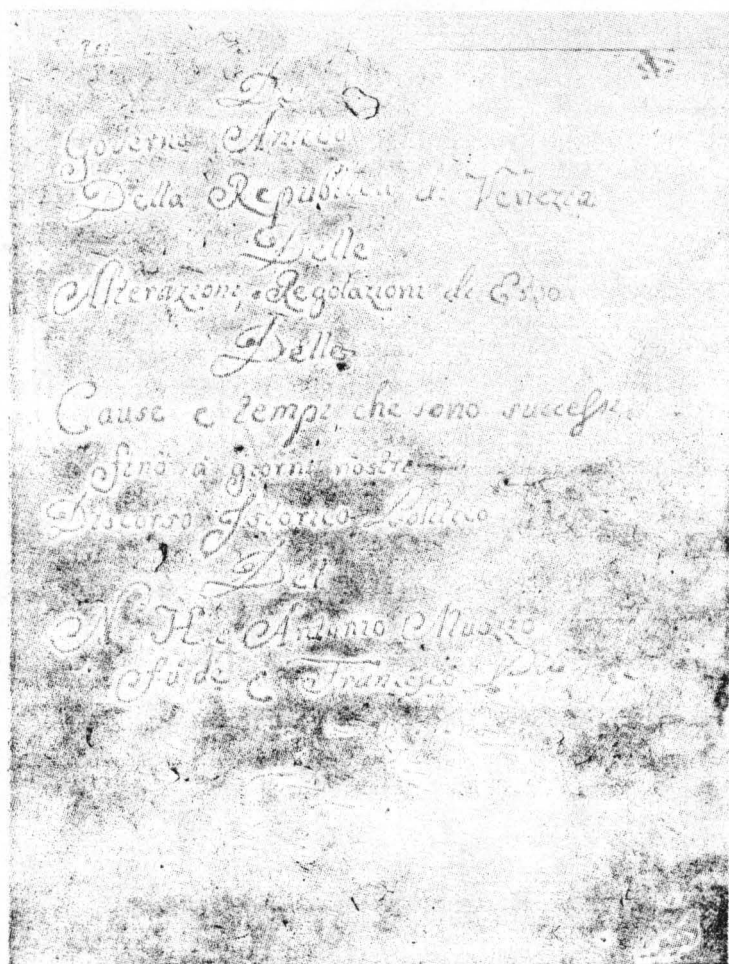 Del
Governo Antico
Della Republica di Venezia
Delle
Alterazioni, e Regolazioni di Esso
Delle
Cause e Tempi che sono successe
Sino à giorni nostri
Discorso Istorico Politico
Del
N. H. Antonio Muazzo
Fu de Francesco